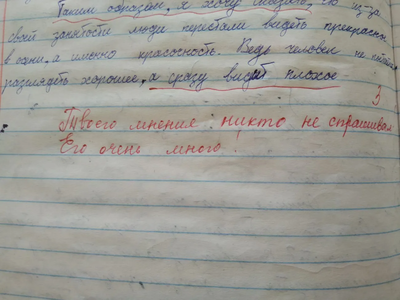 Таким образом, я хочу сказать, что из-за
своей занятости люди перестали видеть прекрасное
в одни, а именно красочность. Ведь человек не
разглядеть хорошее, а сразу видит плохое
3
Твоего мнения: никто не спрашивал
Его очень много!